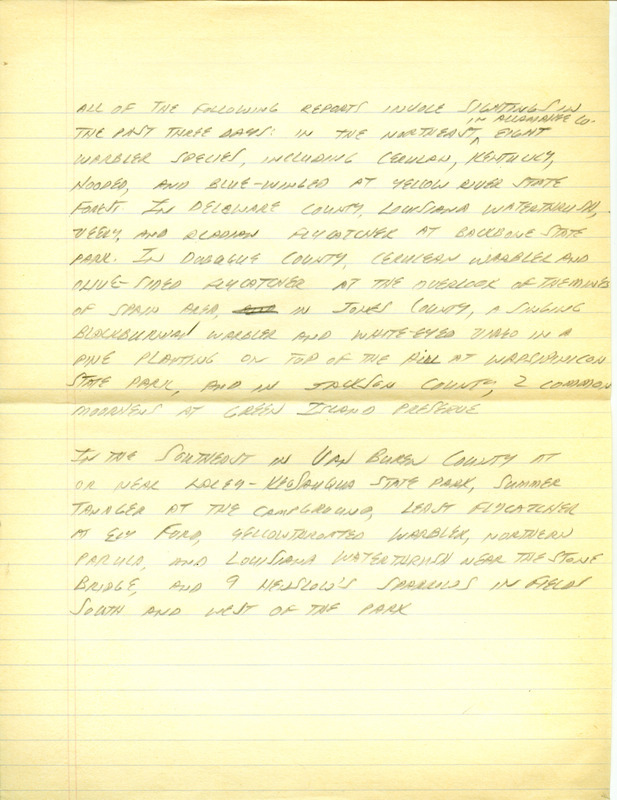 ALL OF THE FOLLOWING REPORTS INVOLE SIGHTINGS IN
THE PAST THREE DAYS: IN THE NORTHEAST, IN ALLAMAKEE CO. EIGHT
WARBLER SPECIES, INCLUDING CERULEAN, KENTUCKY,
HOODED, AND BLUE-WINGED AT YELLOW RIVER STATE
FOREST IN DELAWARE COUNTY, LOUISIANA WATERTHRUSH,
VEERY, AND ACADIAN FLYCATCHER AT BACKBONE STATE
PARK. IN DUBUQUE COUNTY, CERULEAN WARBLER AND
OLIVE-SIDED FLYCATCHER AT THE OVERLOOK OF THE MINES
OF SPAIN AREA, IN JONES COUNTY, A SINGING
BLACKBURNIAN WARBLER AND WHITE-EYED VIREO IN A
PINE PLANTING ON TOP OF THE HILL AT WAPSIPINICON
STATE PARK, AND IN JACKSON COUNTY, 2 COMMON
MOORHENS AT GREEN ISLAND PRESERVE
IN THE SOUTHEAST IN VAN BUREN COUNTY AT
OR NEAR LACEY-KEOSAUQUA STATE PARK, SUMMER
TANAGER AT THE CAMPGROUND, LEAST FLYCATCHER
AT ELY FORD, YELLOWTHROATED WARBLER, NORTHERN
PARULA, AND LOUISIANA WATERTHRUSH NEAR THE STONE
BRIDGE, AND 9 HENSLOW'S SPARROWS IN FIELDS
SOUTH AND WEST OF THE PARK